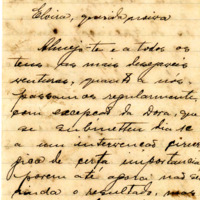 Eloiza, querida prima
Almejo-te e a todos os
teus as mais desejaveis
venturas, quanto a nós
passamos regularmente,
com excepção da Dora, que
se submetteu dia 1º
a um intervenção cirur
gica de certa importancia
porem até agora não se
o resultado, mas